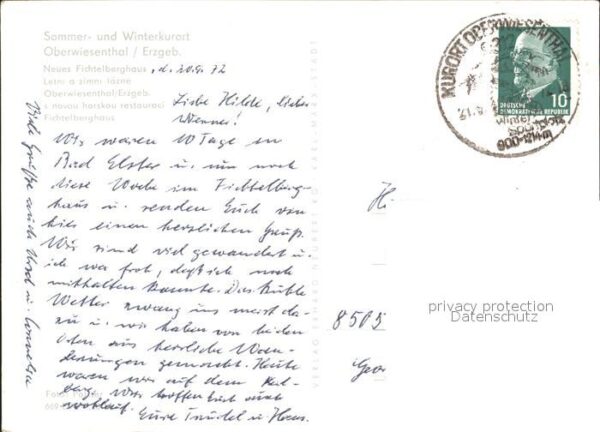 Sommer- und Winterkurort
Oberwiesenthal / Erzgeb.
Neues Fichtelberghaus
Letni a zimni lázne
Oberwiesenthal/Erzgeb.
s novou horskou restauraci
Fichtelberghaus
d. 20.9.72
Liebe Hilde, lieber
Werner!
Wir waren 10 Tage in
Bad Elster u. nun noch
diese Woche im Fichtelberg-
haus u. senden Euch von
hier einen herzlichen Gruß.
Wir sind viel gewandert u.
ich war froh, daß ich noch
mithalten konnte. Das kühle
Wetter zwang uns meist da-
zu u. wir haben von beiden
Orten aus herrliche Wan-
derungen gemacht. Heute
waren wir auf dem Keil-
berg. Wir hoffen Euch auch
wohlauf. Eure Trudel u. Hans.
Viele Grüße auch Ursel u. Cornelia
VERLAG ERHARD NEUBERT KG KARL-MARX-STADT
Foto:
KURORT OBERWIESENTHAL
900-1214 m
DEUTSCHE
DEMOKRATISCHE REPUBLIK
10
Hi
8505
Geor
privacy protection
Datenschutz